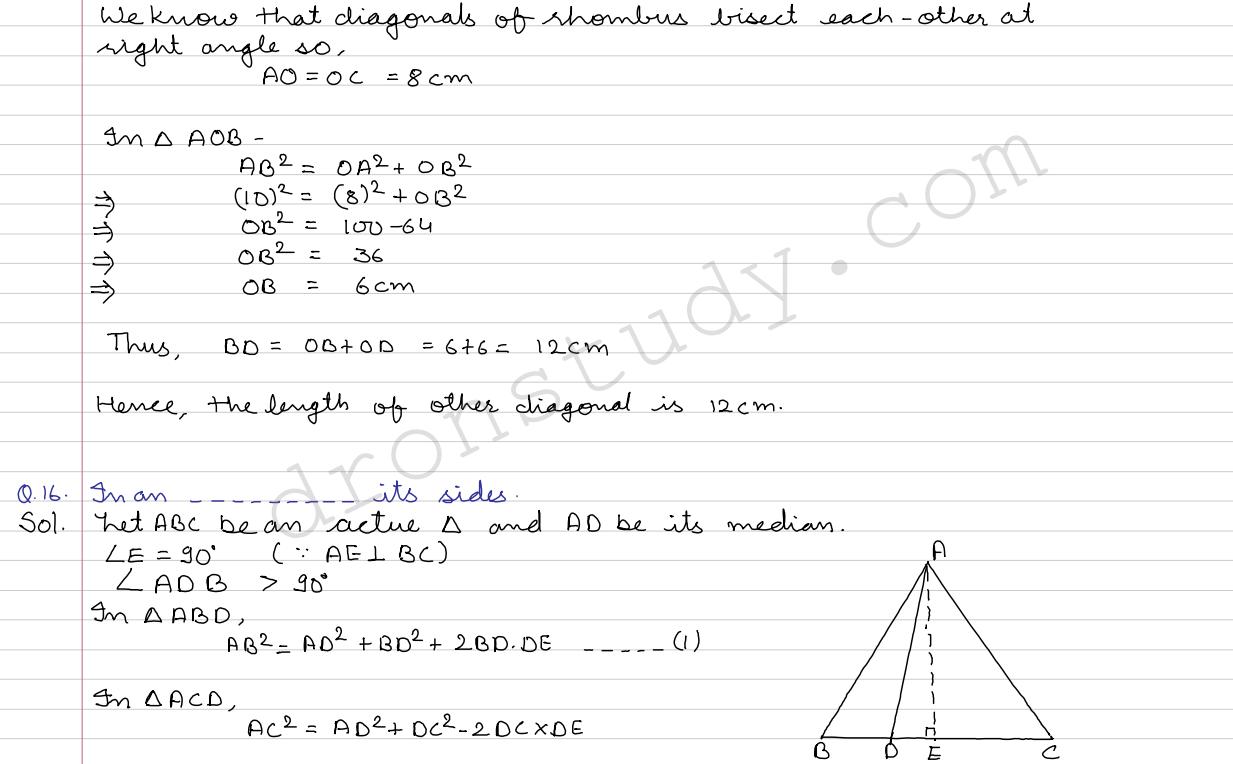 We know that diagonals of rhombus bisect each-other at
right angle so,
AO = OC = 8cm
In △ AOB -
AB² = OA² + OB²
⇒ (10)² = (8)² + OB²
⇒ OB² = 100-64
⇒ OB² = 36
⇒ OB = 6cm
Thus, BD = OB+OD = 6+6 = 12cm
Hence, the length of other diagonal is 12cm.
Q.16. In an _ _ _ _ _ _ _ _ _ its sides.
Sol. Let ABC be an actue △ and AD be its median.
∠E = 90° (∵ AE⊥BC)
∠ADB > 90°
In △ABD,
AB² = AD² + BD² + 2BD.DE _ _ _ _ _ (1)
In △ACD,
AC² = AD² + DC² - 2DC×DE
A
B D E C
dronstudy.com